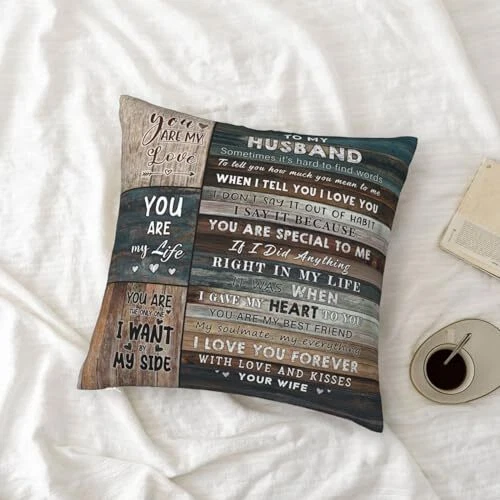 You
ARE MY
Love
YOU
ARE
my Life
YOU ARE
THE ONLY ONE
I WANT
BY
MY SIDE
TO MY
HUSBAND
Sometimes it's hard to find words
To tell you how much you mean to me
WHEN I TELL YOU I LOVE YOU
I DON'T SAY IT OUT OF HABIT
I SAY IT BECAUSE
YOU ARE SPECIAL TO ME
If I Did Anything
RIGHT IN MY LIFE
IT WAS WHEN
I GAVE MY HEART TO YOU
YOU ARE MY BEST FRIEND
My soulmate, my everything
I LOVE YOU FOREVER
WITH LOVE AND KISSES
YOUR WIFE